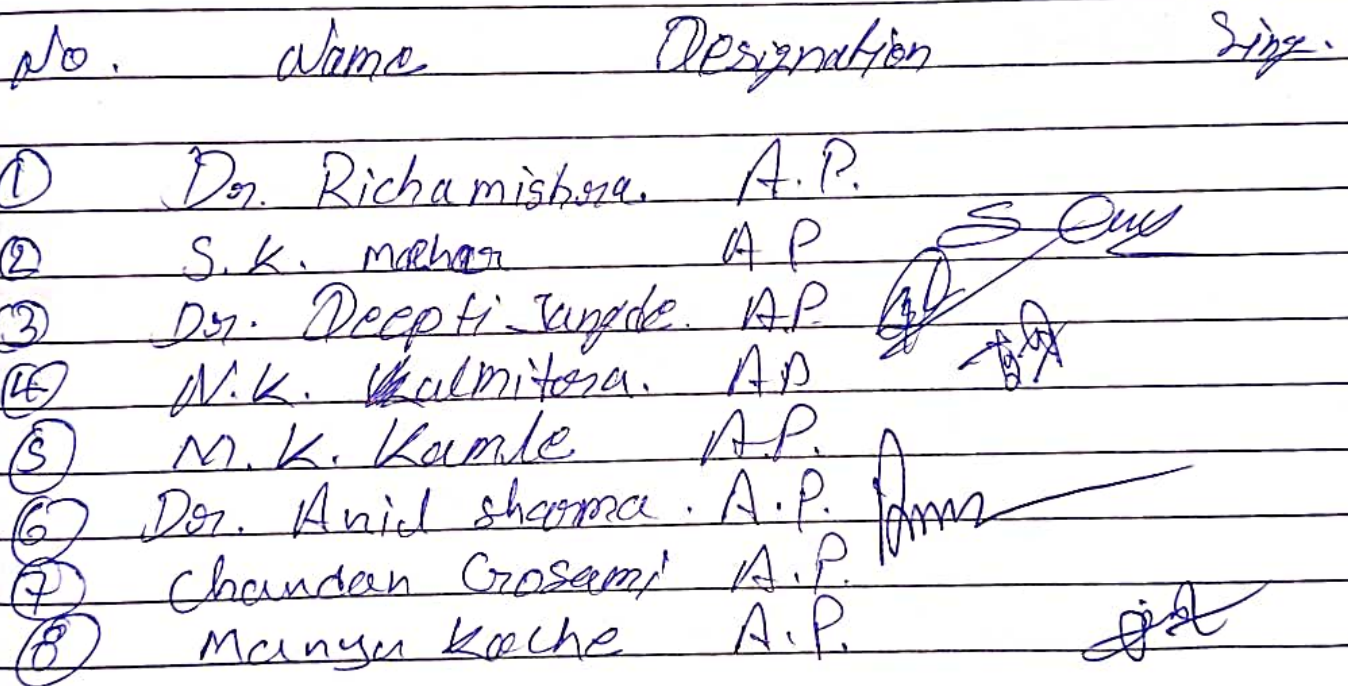 No. Name Designation Sing.
① Dr. Richamishra. A.P.
② S.K. mehar A P
③ Dr. Deepti Jangde. A.P.
④ N.K. Kalmitora. A.P
⑤ M.K. Kamle A.P.
⑥ Dr. Anid sharma. A.P.
⑦ Chandan Gosami A.P.
⑧ Manya Koche A.P.